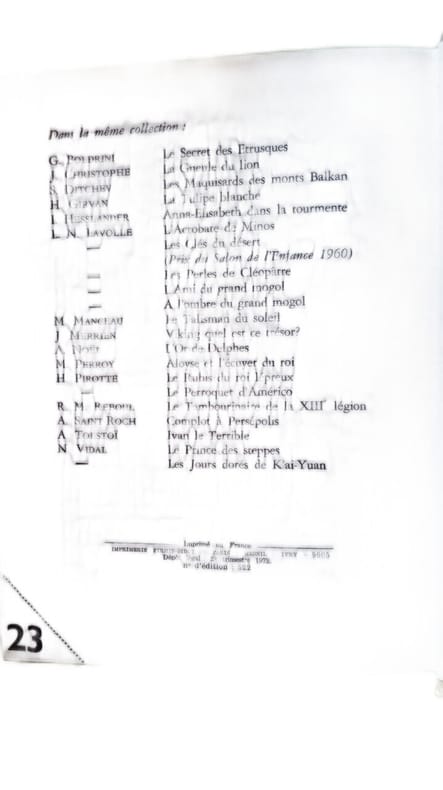 Dans la même collection :
G. Le Secret des Étrusques
J. CHRISTOPHE La Gueule du lion
S. DITCHEV Les Maquisards des monts Balkan
H. La Tulipe blanche
Anna-Élisabeth dans la tourmente
L. N. LAVOLLE L'Acrobate de Minos
— Les Clés du désert
(Prix du Salon de l'Enfance 1960)
— Les Perles de Cléopâtre
— L'Ami du grand mogol
— A l'ombre du grand mogol
M. MANCEAU Le Talisman du soleil
J. MERRIEN quel est ce trésor?
A. L'Or de Delphes
M. PERROY et l'écuyer du roi
H. PIROTTE Le Rubis du roi lépreux
— Le Perroquet d'Américo
R. M. REBOUL Le Tambourinaire de la XIIIe légion
A. SAINT ROCH Complot à Persépolis
A. TOLSTOÏ Ivan le Terrible
N. VIDAL Le Prince des steppes
— Les Jours dorés de K'ai-Yuan
Imprimé en France
IMPRIMERIE IVRY
Dépôt trimestre
n° d'édition : 522
23